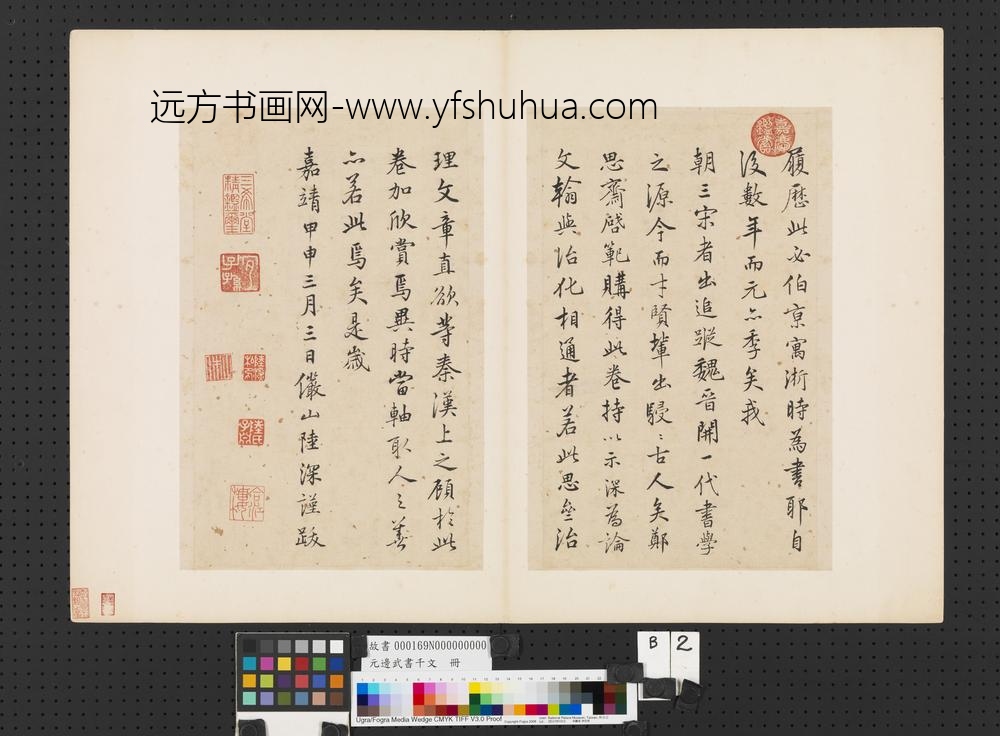 远方书画网-www.yfshuhua.com
履歷此必伯京寓浙時為書耶自
沒數年而元亦季矣我
朝三宋者出追蹤魏晉開一代書學
之源今而才賢輩出駸〻古人矣鄭
思齋啓範購得此卷持以示深為論
文翰與治化相通者若此思齋治
理文章直欲等秦漢上之顧於此
卷加欣賞焉異時當軸取人之善
亦若此焉矣是歲
嘉靖甲申三月三日儼山陸深謹跋
嘉慶鑑賞
三希堂精鑑璽
宜子孫
陸氏子京
故書 000169N000000000
元邊武書千文 冊
B 2
Ugra/Fogra Media Wedge CMYK TIFF V3.0 Proof